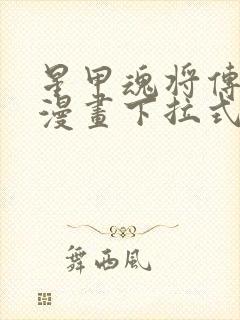 星甲魂将傳
漫畫下拉式
舞西風